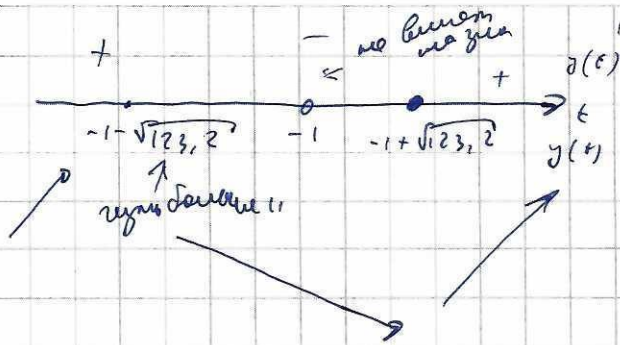 + − не влияет
на знак
+ y(t)
-1-√123,2 -1 -1+√123,2 t
y(t)
чуть больше 11